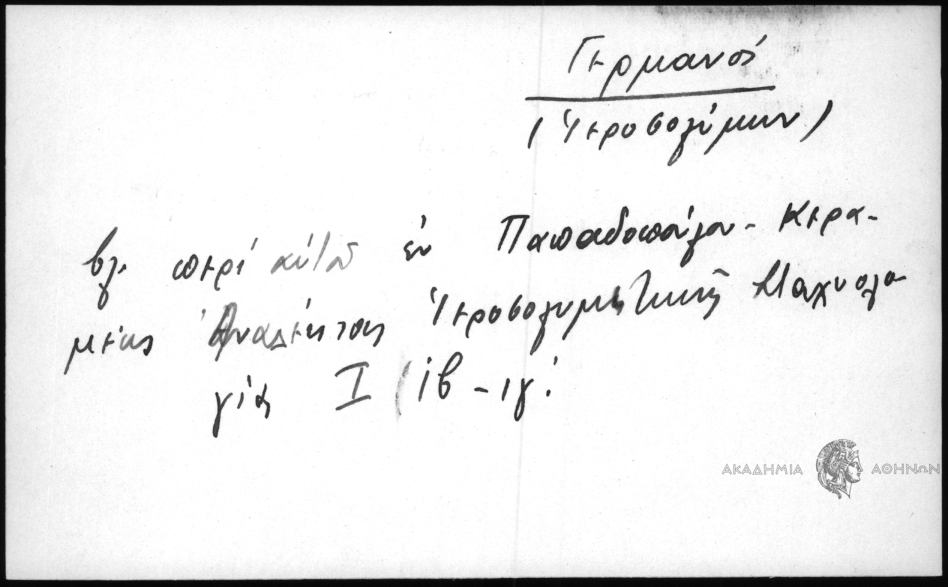 Γερμανός
(Ἱεροσολύμων)
βλ. περὶ αὐτοῦ ἐν Παπαδοπούλου-Κερα-
μέως Ἀνάλεκτα Ἱεροσολυμιτικῆς Σταχυολο-
γίας I ιβ-ιγ.
ΑΚΑΔΗΜΙΑ ΑΘΗΝΩΝ